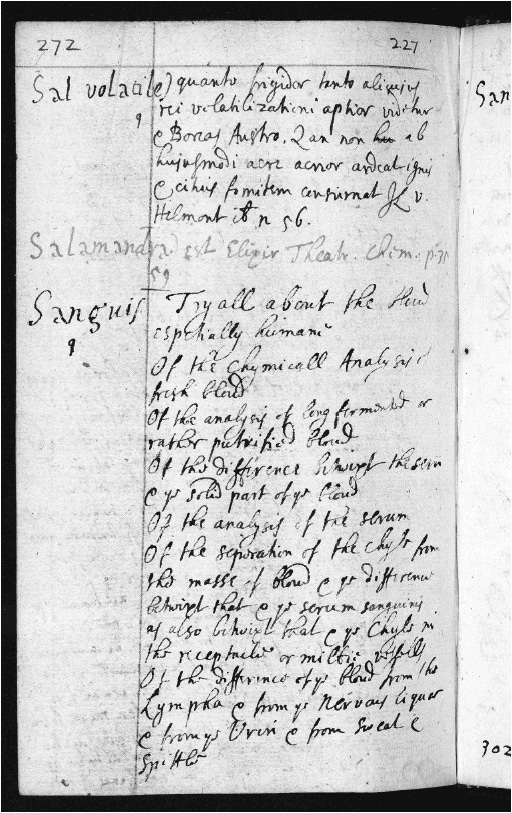 272 227
Sal volatile) quanto frigidor tanto alicujus
9 rei volatilizationi aptior videtur
e Boreas Austro. Q an non hu ab
hujusmodi aere acrior ardeat ignis
e citius fomitem consumat JL v.
Helmont ib n 56.
Salamandra est Elixir Theatr. Chem. p.
59
Sanguis Try all about the bloud
9 especially humane
Of the Chymicall Analysis of
fresh bloud
Of the analysis of long fermented or
rather putrified bloud
Of the difference betwixt the serum
e ye solid part of ye bloud
Of the analysis of the serum
Of the separation of the chyle from
the masse of bloud e ye difference
betwixt that e ye serum sanguinis
as also betwixt that e ye Chyle in
the receptacle or milkie vessells
Of the difference of ye bloud from the
Lympha e from ye Nervous liquor
e from ye Urin e from sweat e
spittle
San
302